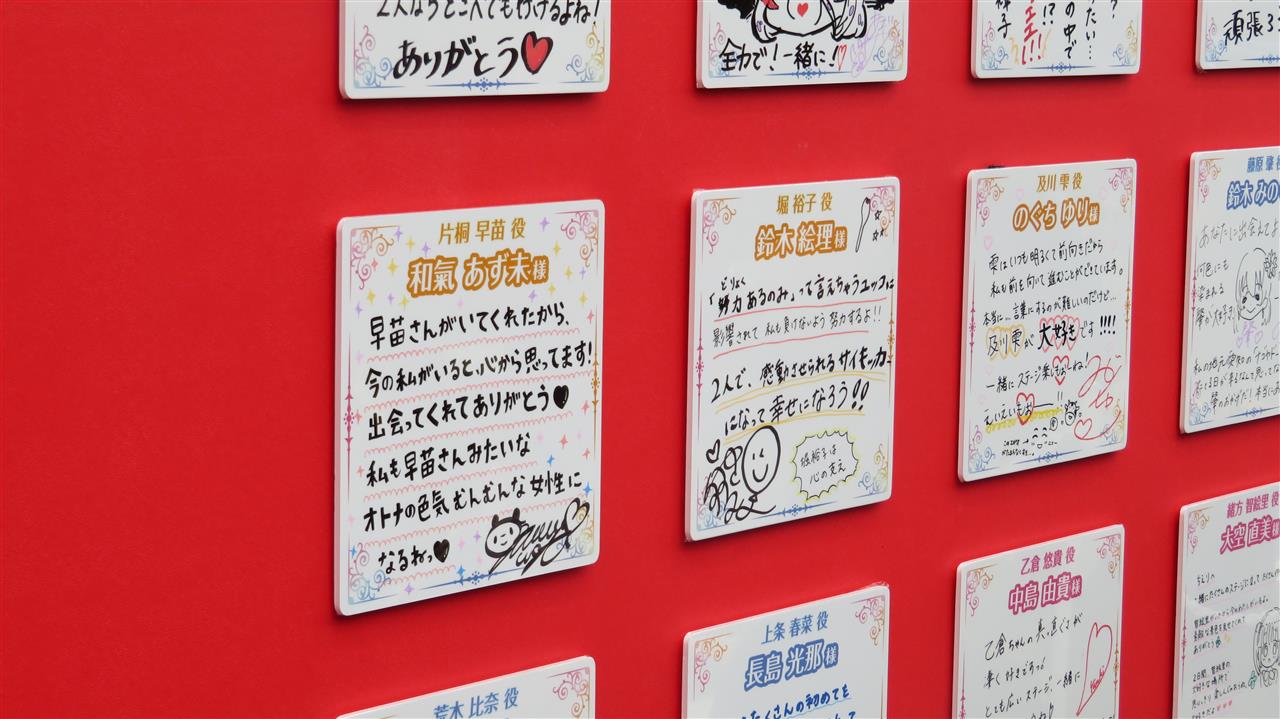 2人ならどこへでも行けるよね!
ありがとう
全力で!一緒に!
の中で
頑張ろ
片桐 早苗 役
和氣 あず未様
早苗さんがいてくれたから、
今の私がいると、心から思ってます!
出会ってくれてありがとう♥
私も早苗さんみたいな
オトナの色気むんむんな女性に
なるねっ♥
堀 裕子 役
鈴木 絵理様
どりょく
「努力あるのみ」って言えちゃうユッコに
影響されて 私も負けないよう 努力するよ!!
2人で、感動させられるサイキッカー
になって幸せになろう!!
堀裕子は
心の支え
及川 雫 役
のぐち ゆり様
雫はいつも明るくて前向きだから
私も前を向いて進むことができています。
本当に…言葉にするのが難しいのだけど…
及川雫が大好きです!!!!
一緒にステージ楽しもおしね!
えいえいもおー!!
藤原 肇 役
鈴木 みの
あなたに出会えてよ
何色にも
染まれる
肇が大好き
荒木 比奈 役
上条 春菜 役
長島 光那様
たくさんの初めてを
乙倉 悠貴 役
中島 由貴様
乙倉ちゃんの真っ直ぐさが
凄く好きですっ!
とても広いステージ、一緒に
緒方 智絵里 役
大空 直美様
ちえりの
ありがとう
2日間、智絵里の
大好きな場所で